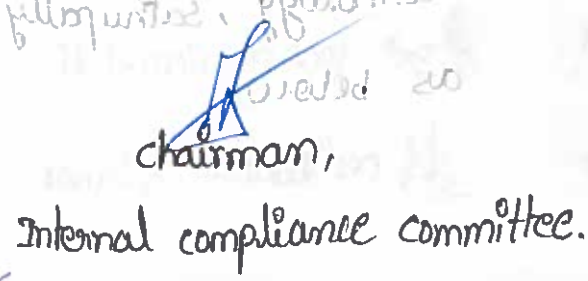 chairman,
Internal compliance committee.